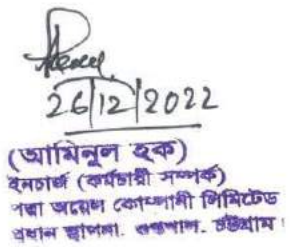 26/12/2022
(আমিনুল হক)
ইনচার্জ (কর্মচারী সম্পর্ক)
পদ্মা অয়েল কোম্পানী লিমিটেড
প্রধান স্থাপনা, গুপ্তখাল, চট্টগ্রাম।